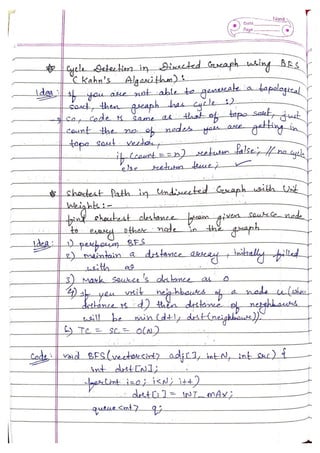 Date
Page
Cycle Detection in Directed Graph using BFS
(Kahn's Algorithm):
Idea: if you are not able to generate a topological
sort, then graph has cycle :)
→ so, code is same as that of topo sort, just
count the no. of nodes you are getting in
topo sort vector,
if (count == n) return false; // no cycle
else return true;
Shortest Path in Undirected Graph with Unit
Weights :-
find shortest distance from given source node
to every other node in the graph
Idea: 1) perform BFS
2) maintain a distance array, initially filled
with ∞
3) Mark source's distance as 0
4) if you visit neighbours of a node u (whose
distance is d) then distance of neighbours
will be min (d+1, dist(neighbour)).
5) TC = SC = O(N)
Code: void BFS(vector<int> adj[], int N, int src) {
int dist[N];
for(int i=0; i<N; i++)
dist[i] = INT_MAX;
queue<int> q;